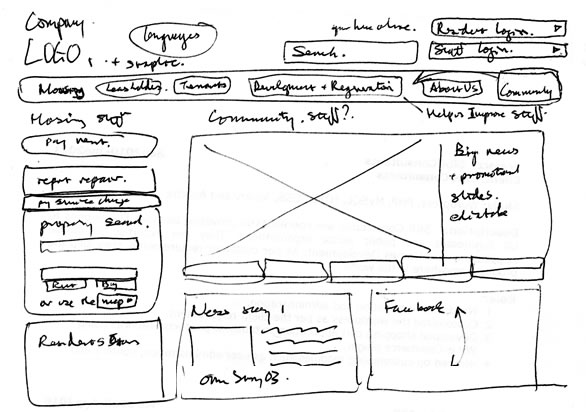 Company
LOGO, + graphic.
languages
Search.
Resident login.
Staff login.
Housing
Leaseholders
Tenants
Development + Regeneration
About Us
Community
Helps Improve Stuff.
Housing stuff
Community. Stuff?.
pay rent.
report repair.
pay service charge
property search.
Rent
Buy
or use the map
Big news
+ promotional
slides.
clickable
News story
Facebook